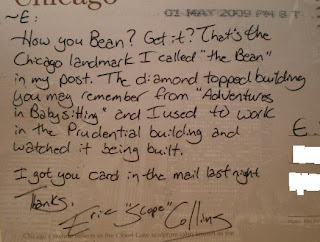 Chicago
01 MAY 2009 PM 8 T
~E:
How you Bean? Get it? That's the
Chicago landmark I called "the Bean"
in my post. The diamond topped building
you may remember from "Adventures
in Babysitting" and I used to work
in the Prudential building and
watched it being built.
I got you card in the mail last night
Thanks.
Eric "Scope" Collins
E.